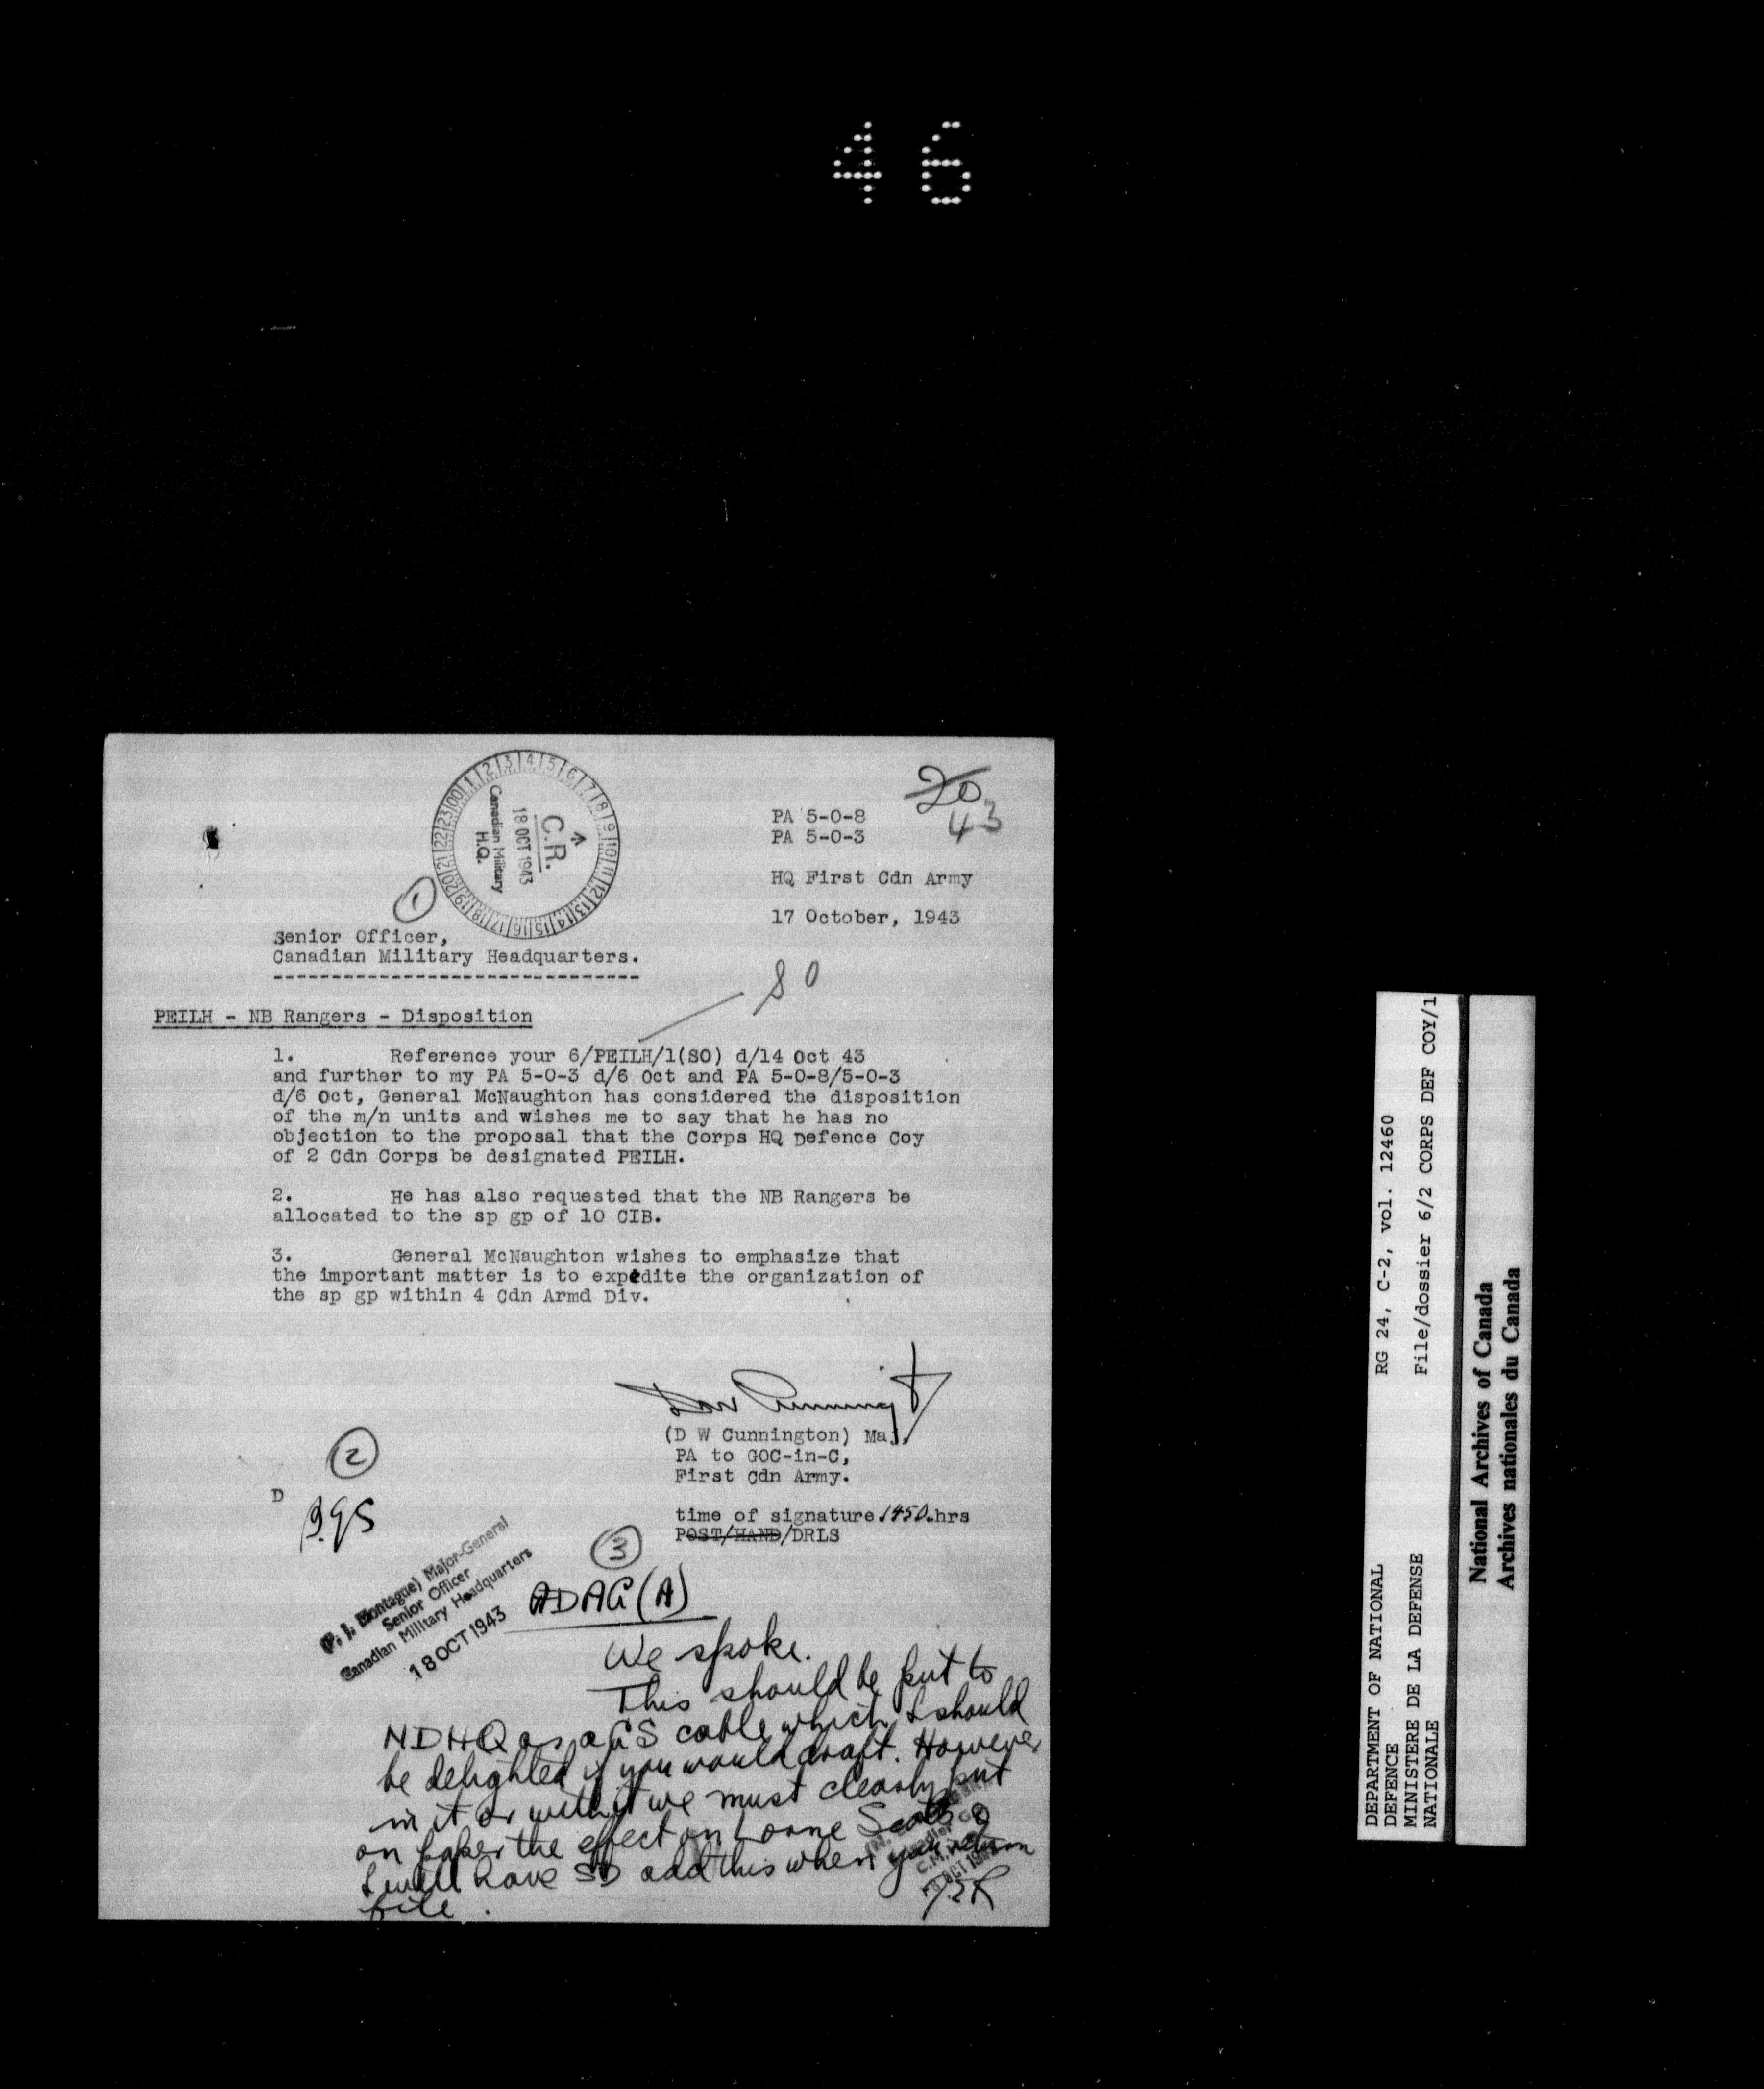 46
20
43
PA 5-0-8
PA 5-0-3
HQ First Cdn Army
17 October, 1943
00 1 2 3 4 5 6 7 8 9 10 11 12 13 14 15 16 17 18 19 20 21 22 23
C.R.
18 OCT 1943
Canadian Military
H.Q.
1
Senior Officer,
Canadian Military Headquarters.
80
PEILH - NB Rangers - Disposition
1. Reference your 6/PEILH/1(SO) d/14 Oct 43
and further to my PA 5-0-3 d/6 Oct and PA 5-0-8/5-0-3
d/6 Oct, General McNaughton has considered the disposition
of the m/n units and wishes me to say that he has no
objection to the proposal that the Corps HQ Defence Coy
of 2 Cdn Corps be designated PEILH.
2. He has also requested that the NB Rangers be
allocated to the sp gp of 10 CIB.
3. General McNaughton wishes to emphasize that
the important matter is to expedite the organization of
the sp gp within 4 Cdn Armd Div.
(D W Cunnington) Maj,
PA to GOC-in-C,
First Cdn Army.
time of signature 1450.hrs
POST/HAND/DRLS
2
D
BGS
(P. J. Montague) Major-General
Senior Officer
Canadian Military Headquarters
18 OCT 1943
3
ADAG(A)
We spoke.
This should be put to
NDHQ as a GS cable which I should
be delighted if you would draft. However
in it or with it we must clearly put
on paper the effect on Lorne Scots &
I will have SD add this when you return
file.
DEPARTMENT OF NATIONAL
DEFENCE
MINISTERE DE LA DEFENSE
NATIONALE
RG 24, C-2, vol. 12460
File/dossier 6/2 CORPS DEF COY/1
National Archives of Canada
Archives nationales du Canada